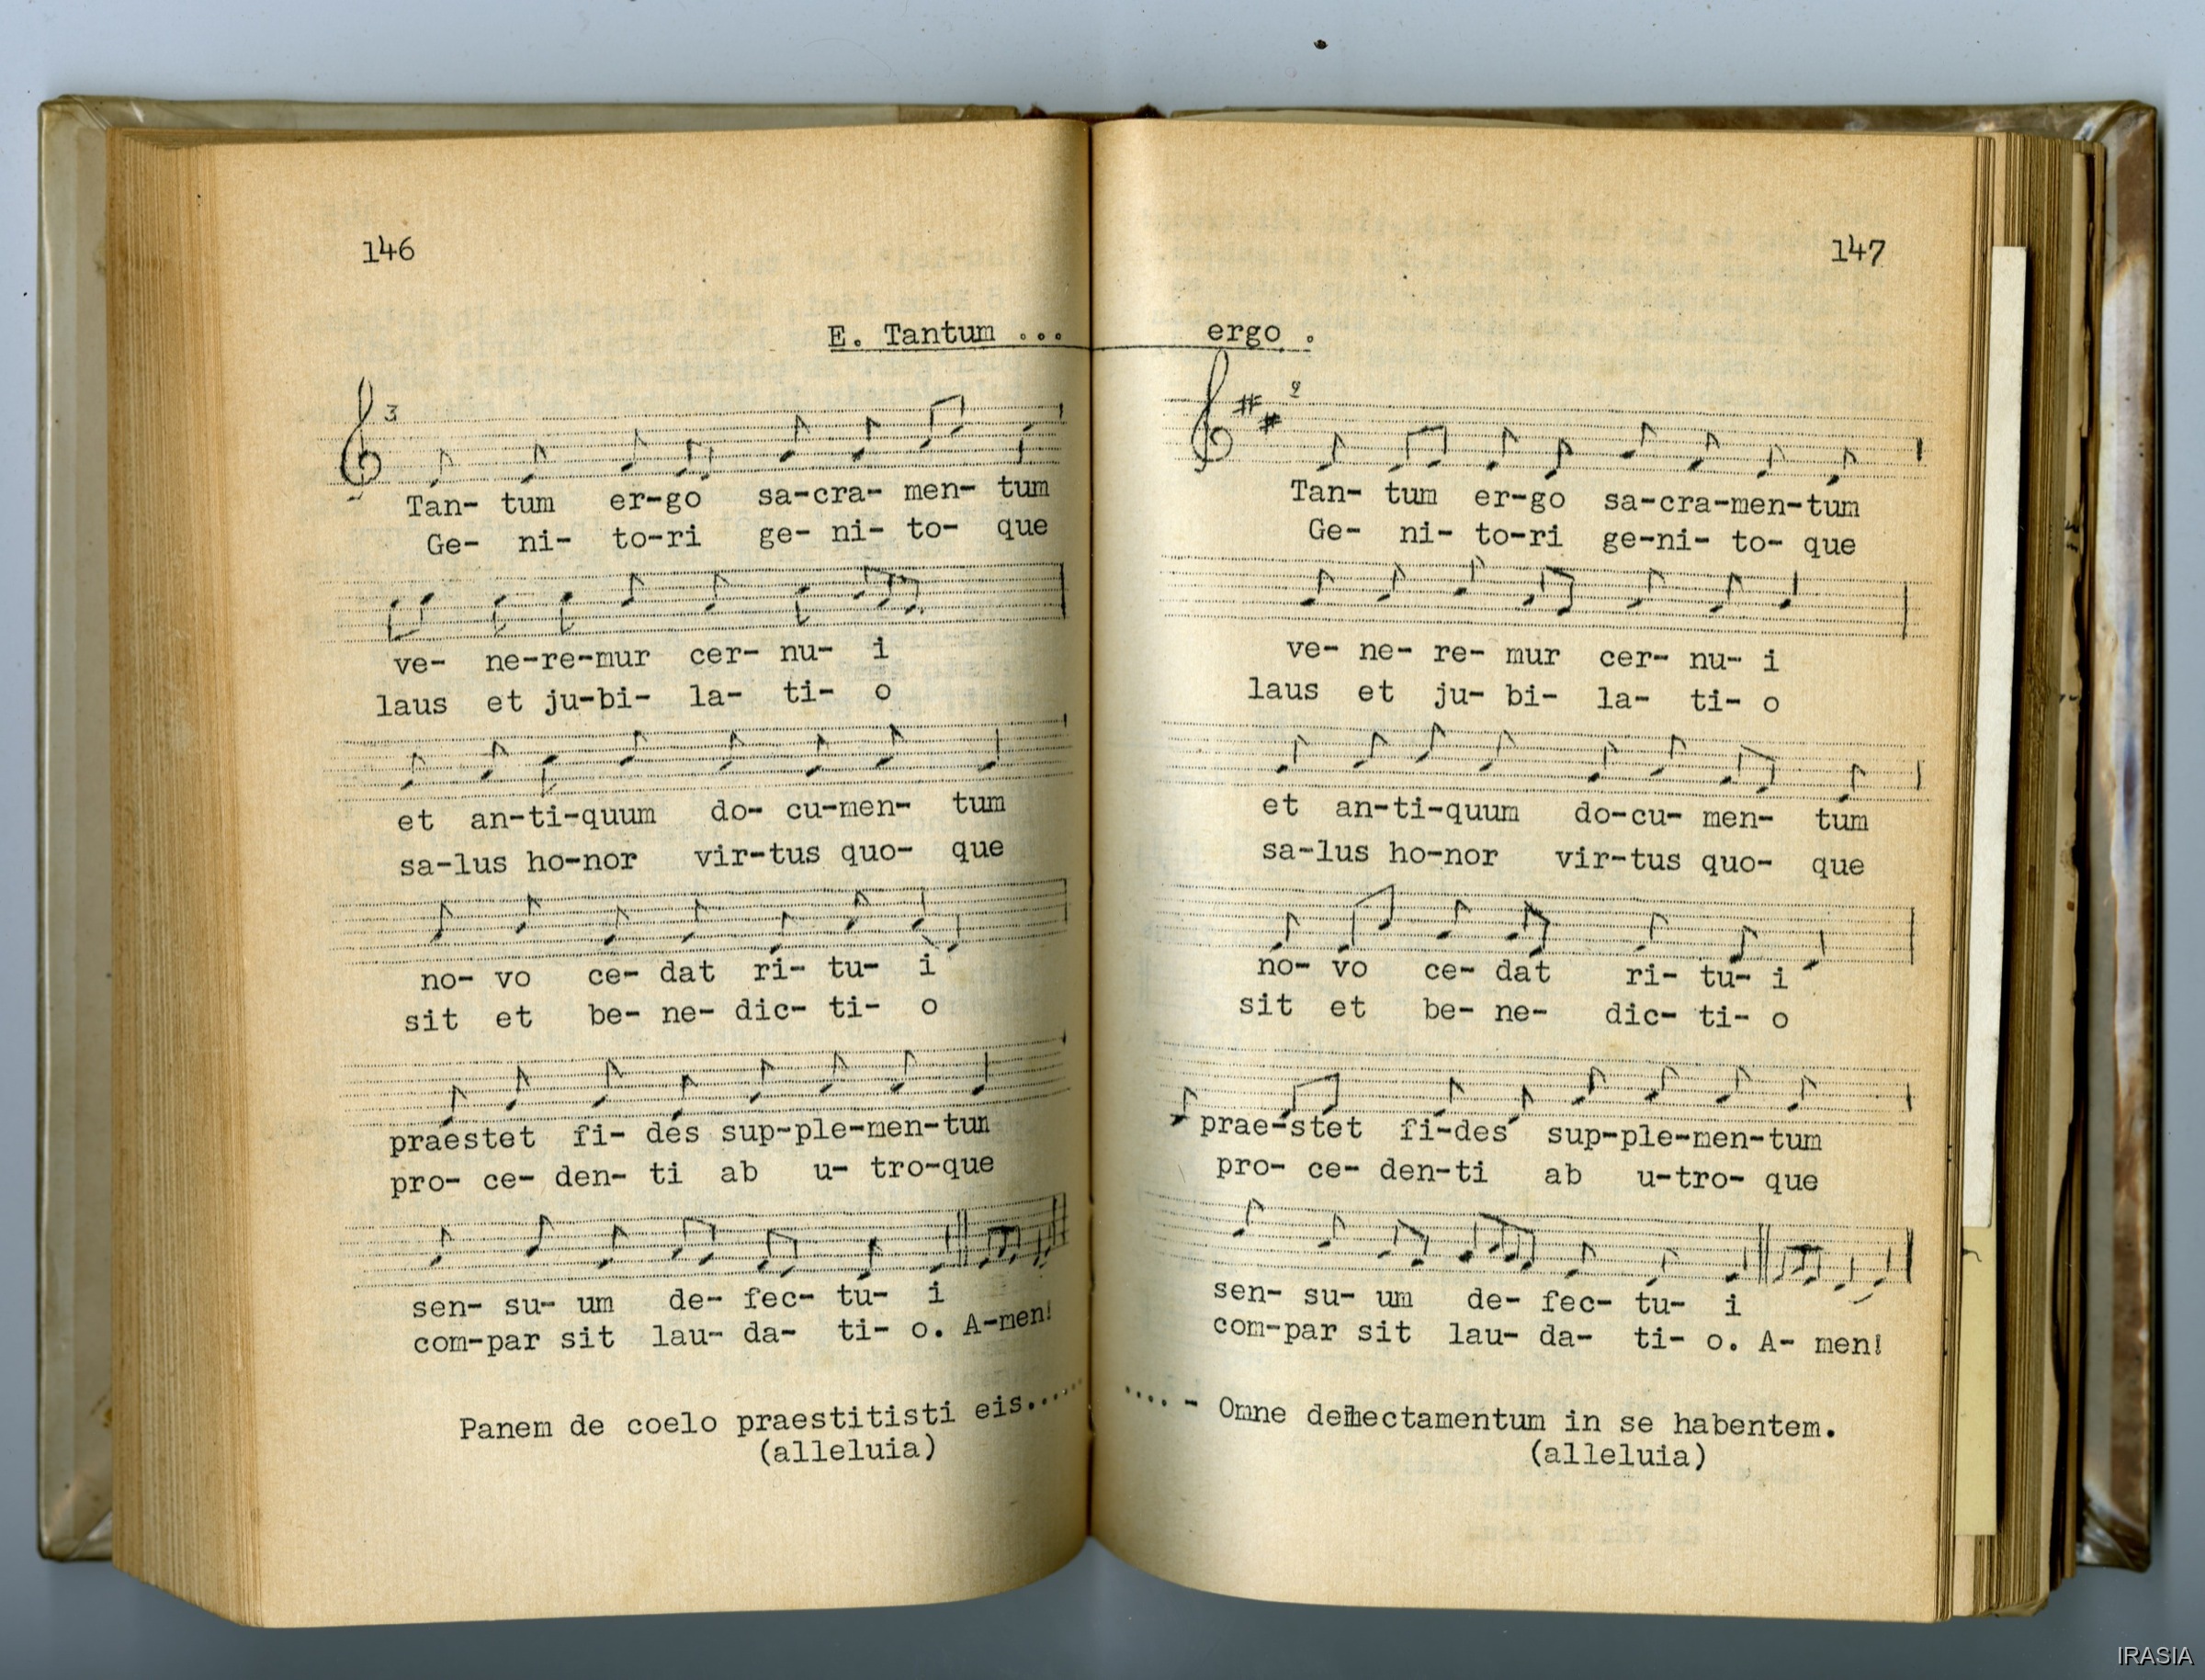 146
E. Tantum ...
3
Tan- tum er-go sa-cra- men- tum
Ge- ni- to-ri ge- ni- to- que
ve- ne-re-mur cer- nu- i
laus et ju-bi- la- ti- o
et an-ti-quum do- cu-men- tum
sa-lus ho-nor vir-tus quo- que
no- vo ce- dat ri- tu- i
sit et be- ne- dic- ti- o
praestet fi- des sup-ple-men-tum
pro- ce- den- ti ab u- tro-que
sen- su- um de- fec- tu- i
com-par sit lau- da- ti- o. A-men!
Panem de coelo praestitisti eis.....
(alleluia)
147
ergo .
2
Tan- tum er-go sa-cra-men-tum
Ge- ni- to-ri ge-ni- to- que
ve- ne- re- mur cer- nu- i
laus et ju- bi- la- ti- o
et an-ti-quum do-cu- men- tum
sa-lus ho-nor vir-tus quo- que
no- vo ce- dat ri- tu- i
sit et be- ne- dic- ti- o
prae-stet fi-des sup-ple-men-tum
pro- ce- den-ti ab u-tro- que
sen- su- um de- fec- tu- i
com-par sit lau- da- ti- o. A- men!
.... - Omne in se habentem.
(alleluia)
IRASIA